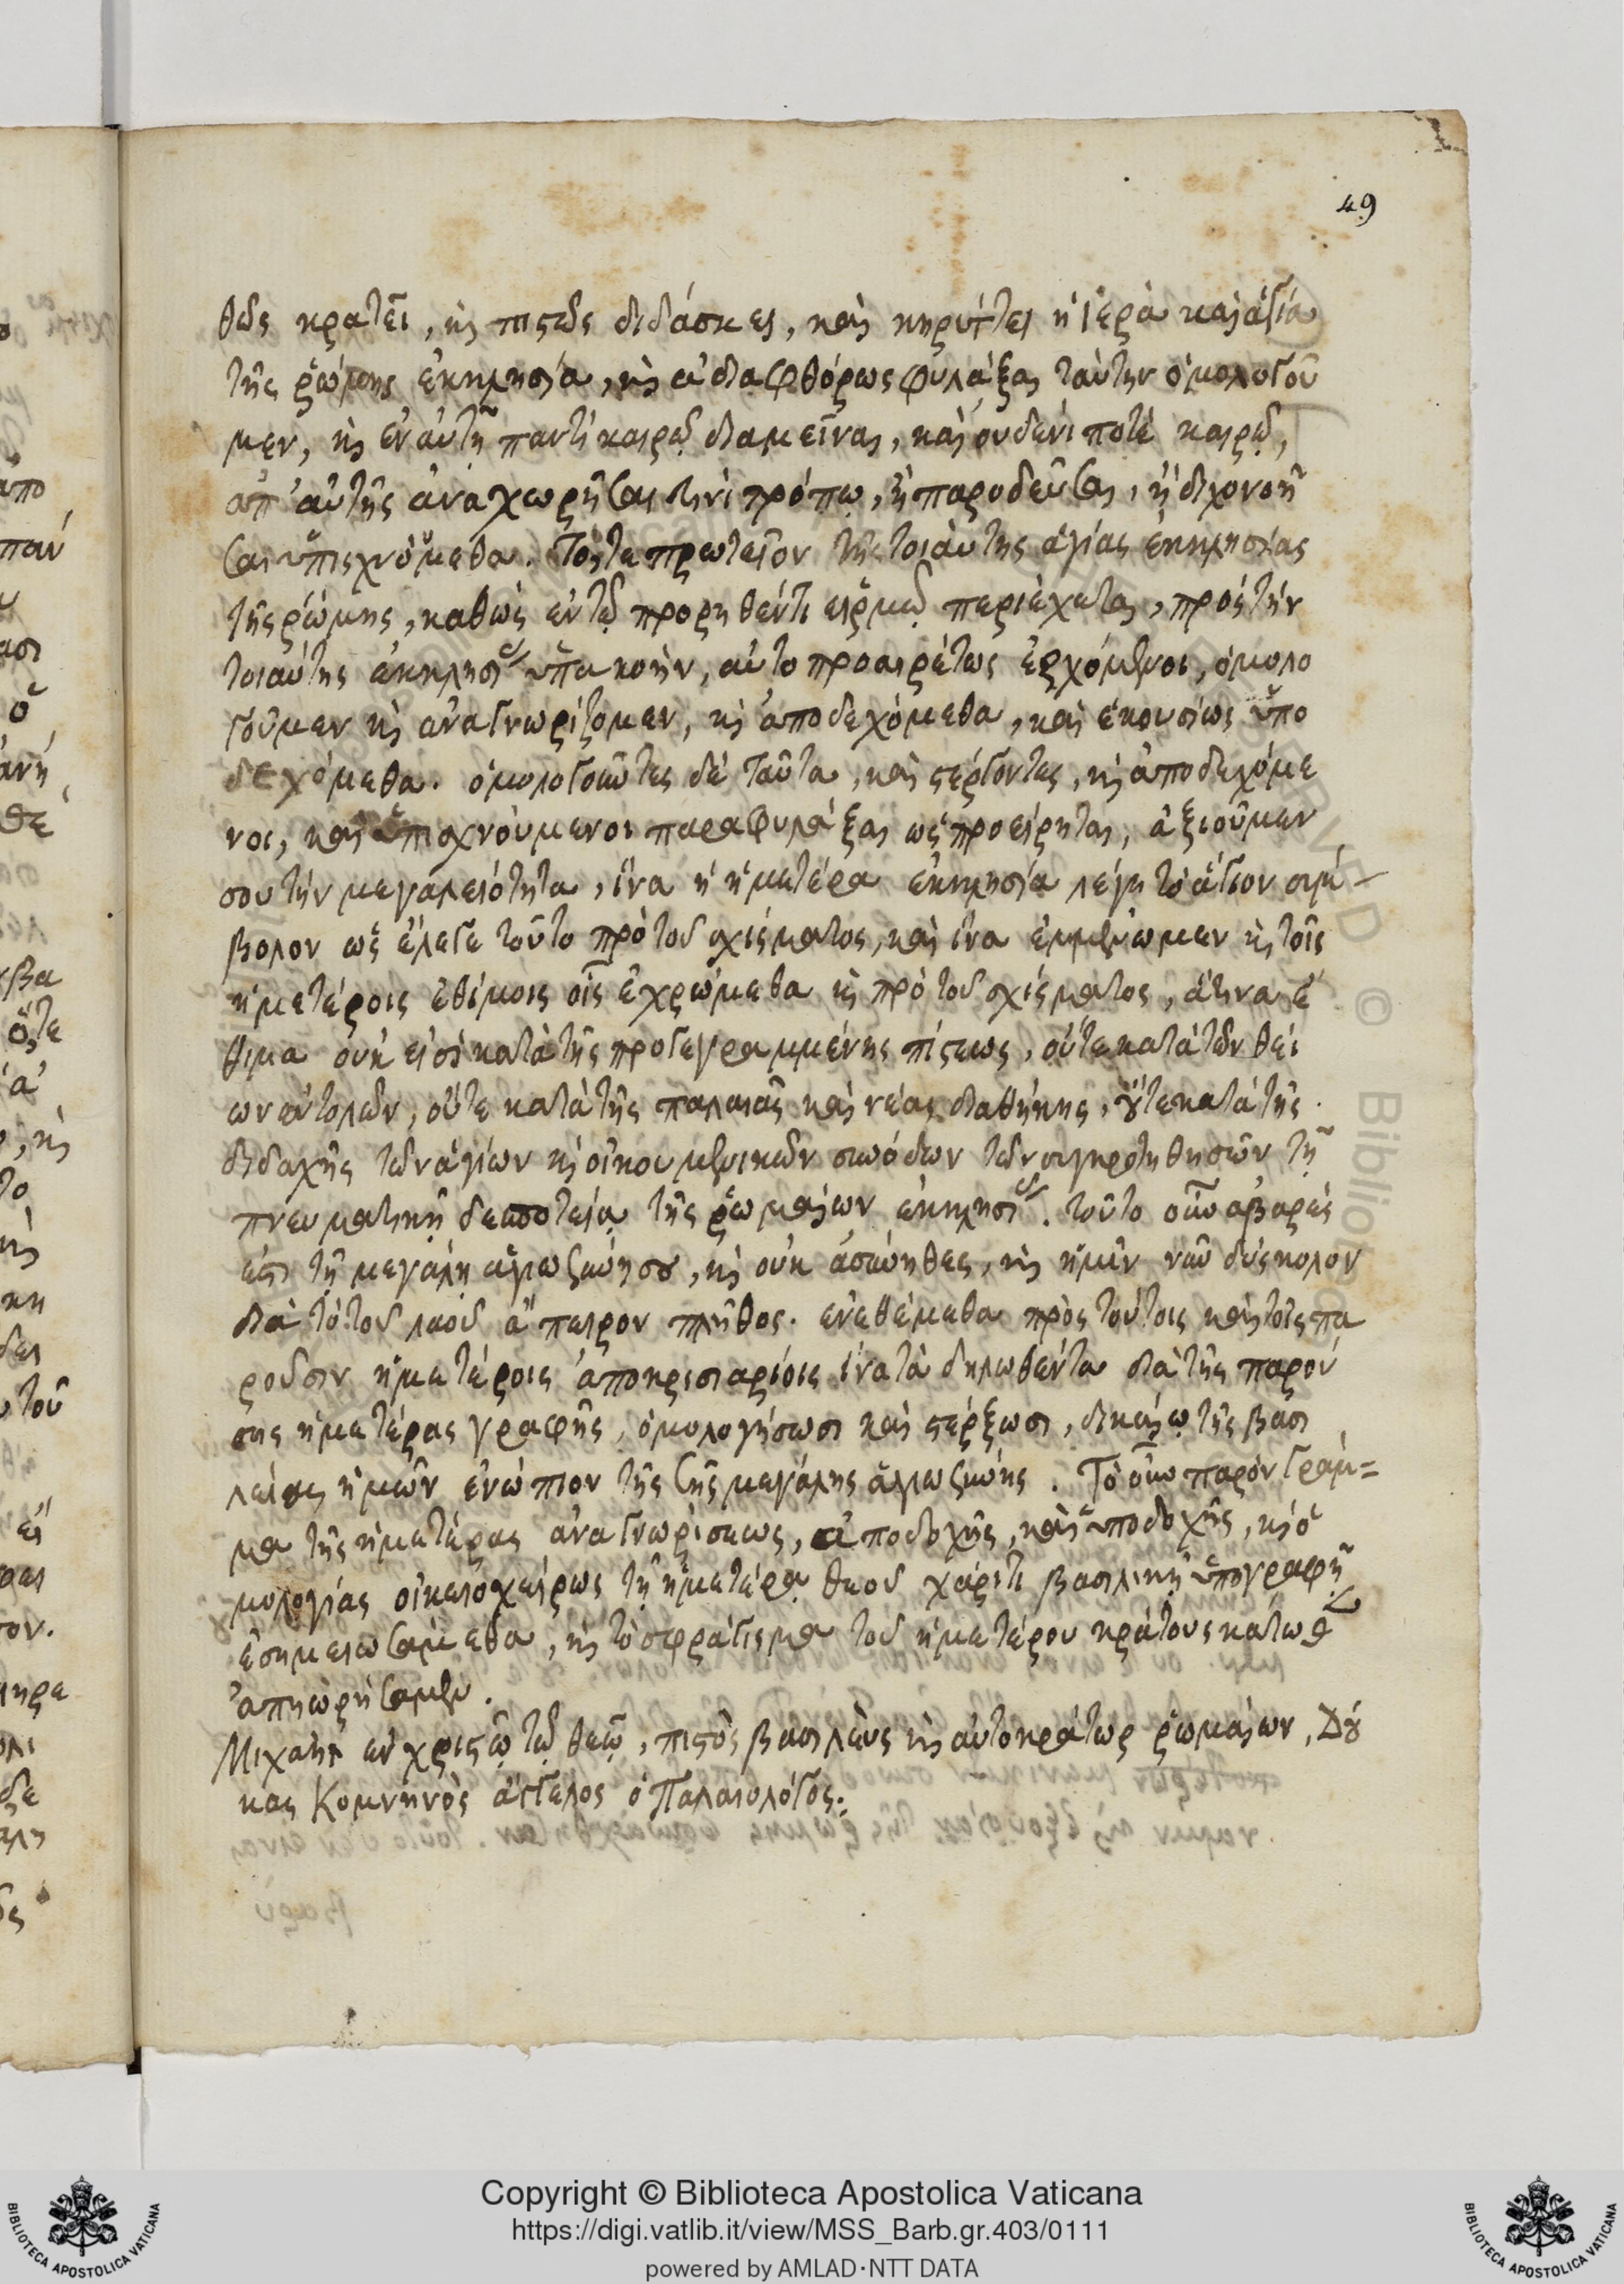 49
θῶς κρατεῖ, κὶ πιστῶς διδάσκει, καὶ κηρύττει ἡ ἱερὰ καὶ ἁγία
τῆς ῥώμης ἐκκλησία, κὶ ἀδιαφθόρως φυλάξαι ταύτην ὁμολογοῦ
μεν, κὶ ἐν αὐτῇ παντὶ καιρῷ διαμεῖναι, καὶ οὐδενί ποτε καιρῷ,
ἀπ' αὐτῆς ἀναχωρῆσαι τινὶ τρόπῳ, ἢ παροδεῦσαι, ἢ διχονοῆ
σαι ὑπισχνούμεθα. Τότε πρωτεῖον τῆς τοιαύτης ἁγίας ἐκκλησίας
τῆς ῥώμης, καθὼς ἐν τῷ προρηθέντι εἱρμῷ περιέχεται, πρὸς τὴν
τοιαύτης ἐκκλησίας ὑπακοὴν, αὐτοπροαιρέτως ἐρχόμενοι, ὁμολο
γοῦμεν κὶ ἀναγνωρίζομεν, κὶ ἀποδεχόμεθα, καὶ ἑκουσίως ὑπο
δεχόμεθα. ὁμολογοῦντες δὲ ταῦτα, καὶ στέργοντες, κὶ ἀποδεχόμε
νοι, καὶ ὑπισχνούμενοι παραφυλάξαι ὡς προείρηται, ἀξιοῦμεν
σου τὴν μεγαλειότητα, ἵνα ἡ ἡμετέρα ἐκκλησία λέγῃ τὸ ἅγιον σύμ-
βολον ὡς ἔλεγε τοῦτο πρὸ τοῦ σχίσματος, καὶ ἵνα ἐμμένωμεν κὶ τοῖς
ἡμετέροις ἐθίμοις οἷς ἐχρώμεθα κὶ πρὸ τοῦ σχίσματος, ἅτινα ἔ
θιμα οὐκ εἰσὶ κατὰ τῆς προγεγραμμένης πίστεως, οὔτε κατὰ τῶν θεί
ων ἐντολῶν, οὔτε κατὰ τῆς παλαιᾶς καὶ νέας διαθήκης, οὔτε κατὰ τῆς
διδαχῆς τῶν ἁγίων κὶ οἰκουμενικῶν συνόδων τῶν συγκροτηθησῶν τῇ
πνευματικῇ δεσποτείᾳ τῆς ῥωμαίων ἐκκλησίας. τοῦτο οὖν ἀβαρές
ἐστι τῇ μεγάλῃ ἁγιωσύνῃ σου, κὶ οὐκ ἀσύνηθες, κὶ ἡμῖν νῦν δύσκολον
διὰ τὸ τοῦ λαοῦ ἄπειρον πλῆθος. ἐνεθέμεθα πρὸς τούτοις καὶ τοῖς πα
ροῦσιν ἡμετέροις ἀποκρισιαρίοις ἵνα τὰ δηλωθέντα διὰ τῆς παρού
σης ἡμετέρας γραφῆς, ὁμολογήσωσι καὶ στέρξωσι, δικαίῳ τῆς βασι
λείας ἡμῶν ἐνώπιον τῆς σῆς μεγάλης ἁγιωσύνης. Τὸ οὖν παρὸν γράμ=
μα τῆς ἡμετέρας ἀναγνωρίσεως, ἀποδοχῆς, καὶ ὑποδοχῆς, κὶ ὁ
μολογίας οἰκειοχείρως τῇ ἡμετέρᾳ θεοῦ χάριτι βασιλικῇ ὑπογραφῇ
ἐσημειωσάμεθα, κὶ τὸ σφράγισμα τοῦ ἡμετέρου κράτους κάτωθεν
ἀπῃωρήσαμεν.
Μιχαὴλ ἐν χριστῷ τῷ θεῷ, πιστὸς βασιλεὺς κὶ αὐτοκράτωρ ῥωμαίων, Δού
κας Κομνηνὸς ἄγγελος ὁ Παλαιολόγος.:
Copyright © Biblioteca Apostolica Vaticana
https://digi.vatlib.it/view/MSS_Barb.gr.403/0111
powered by AMLAD·NTT DATA
BIBLIOTECA APOSTOLICA VATICANA
BIBLIOTECA APOSTOLICA VATICANA